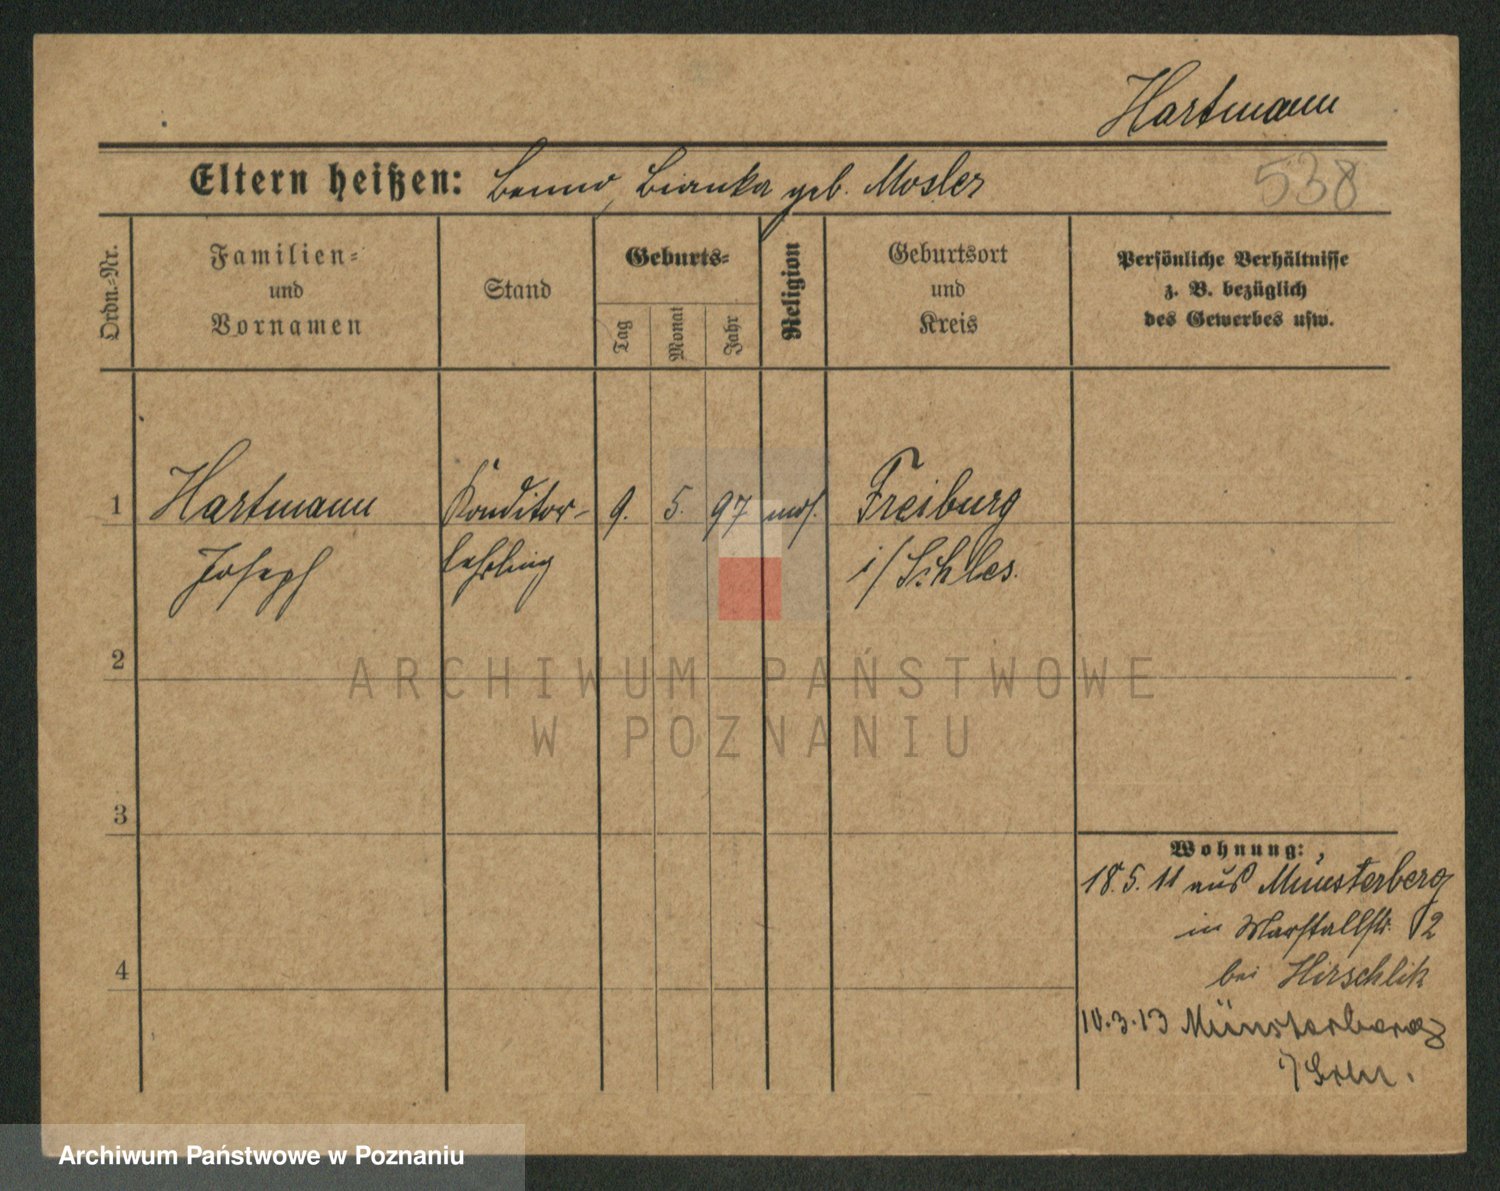 Hartmann
Eltern heißen: Benno, Bianka geb. Mosler
538
Ordn.-Nr.
Familien-
und
Vornamen
Stand
Geburts-
Tag
Monat
Jahr
Religion
Geburtsort
und
Kreis
Persönliche Verhältnisse
z. B. bezüglich
des Gewerbes usw.
1 Hartmann Konditor- 9. 5. 97 mos. Freiburg
Joseph lehrling i/Schles.
2
ARCHIWUM PAŃSTWOWE
W POZNANIU
3
Wohnung:
18.5.11 aus Münsterberg
in Marstallstr. 12
bei Hirschlik
4
10.3.13 Münsterberg
Archiwum Państwowe w Poznaniu